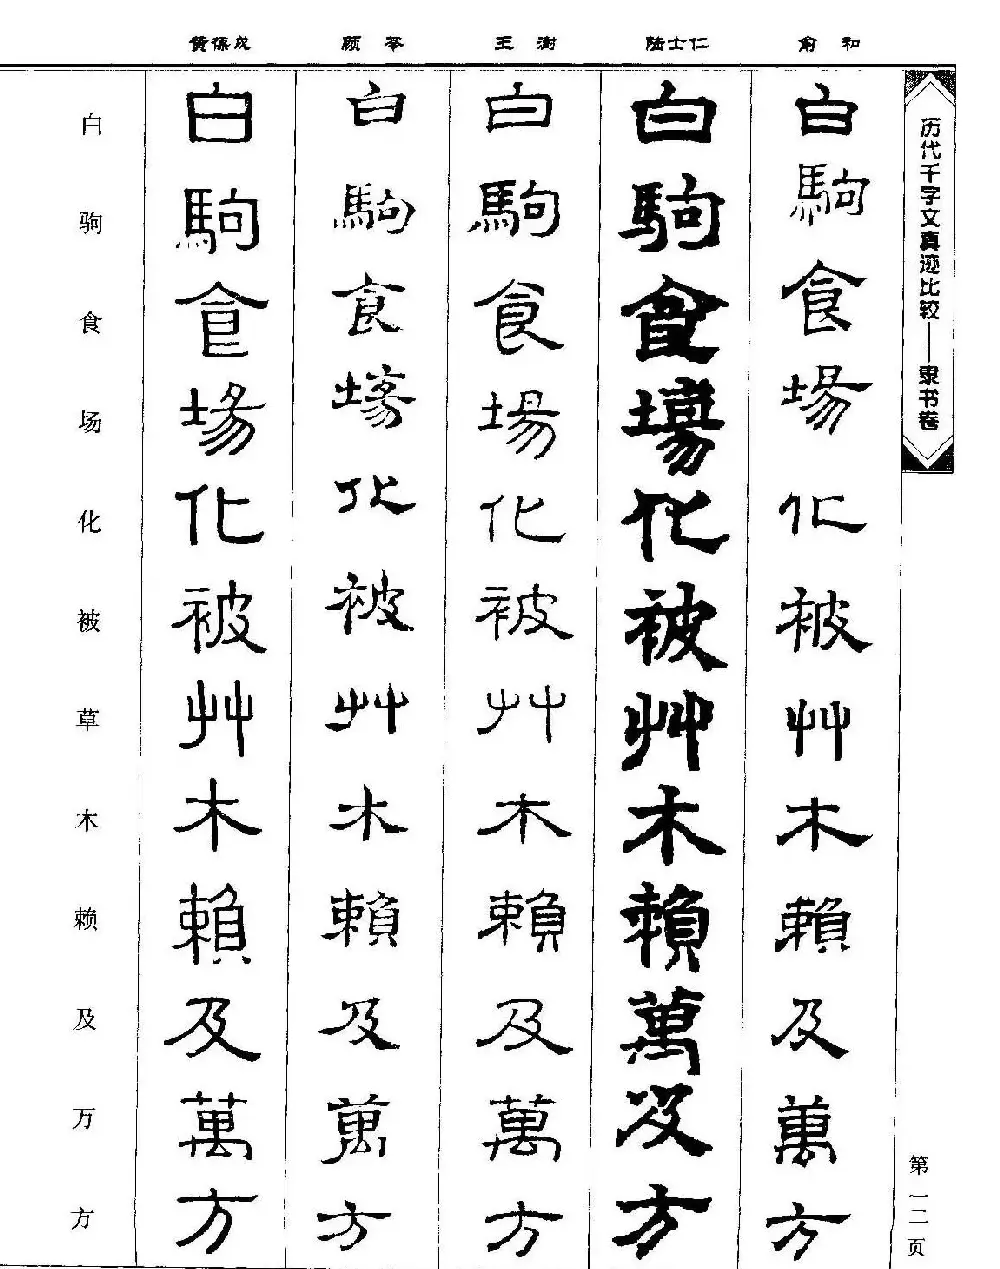 黄葆戉 顾苓 王澍 陆士仁 俞和
历代千字文真迹比较——隶书卷
第一二页
白駒食場化被艸木賴及萬方
白駒食場化被艸木賴萬及方
白駒食場化被艸木賴及萬方
白駒食場化被艸木賴及萬方
白駒食場化被艸木賴及萬方
白驹食场化被草木赖及万方